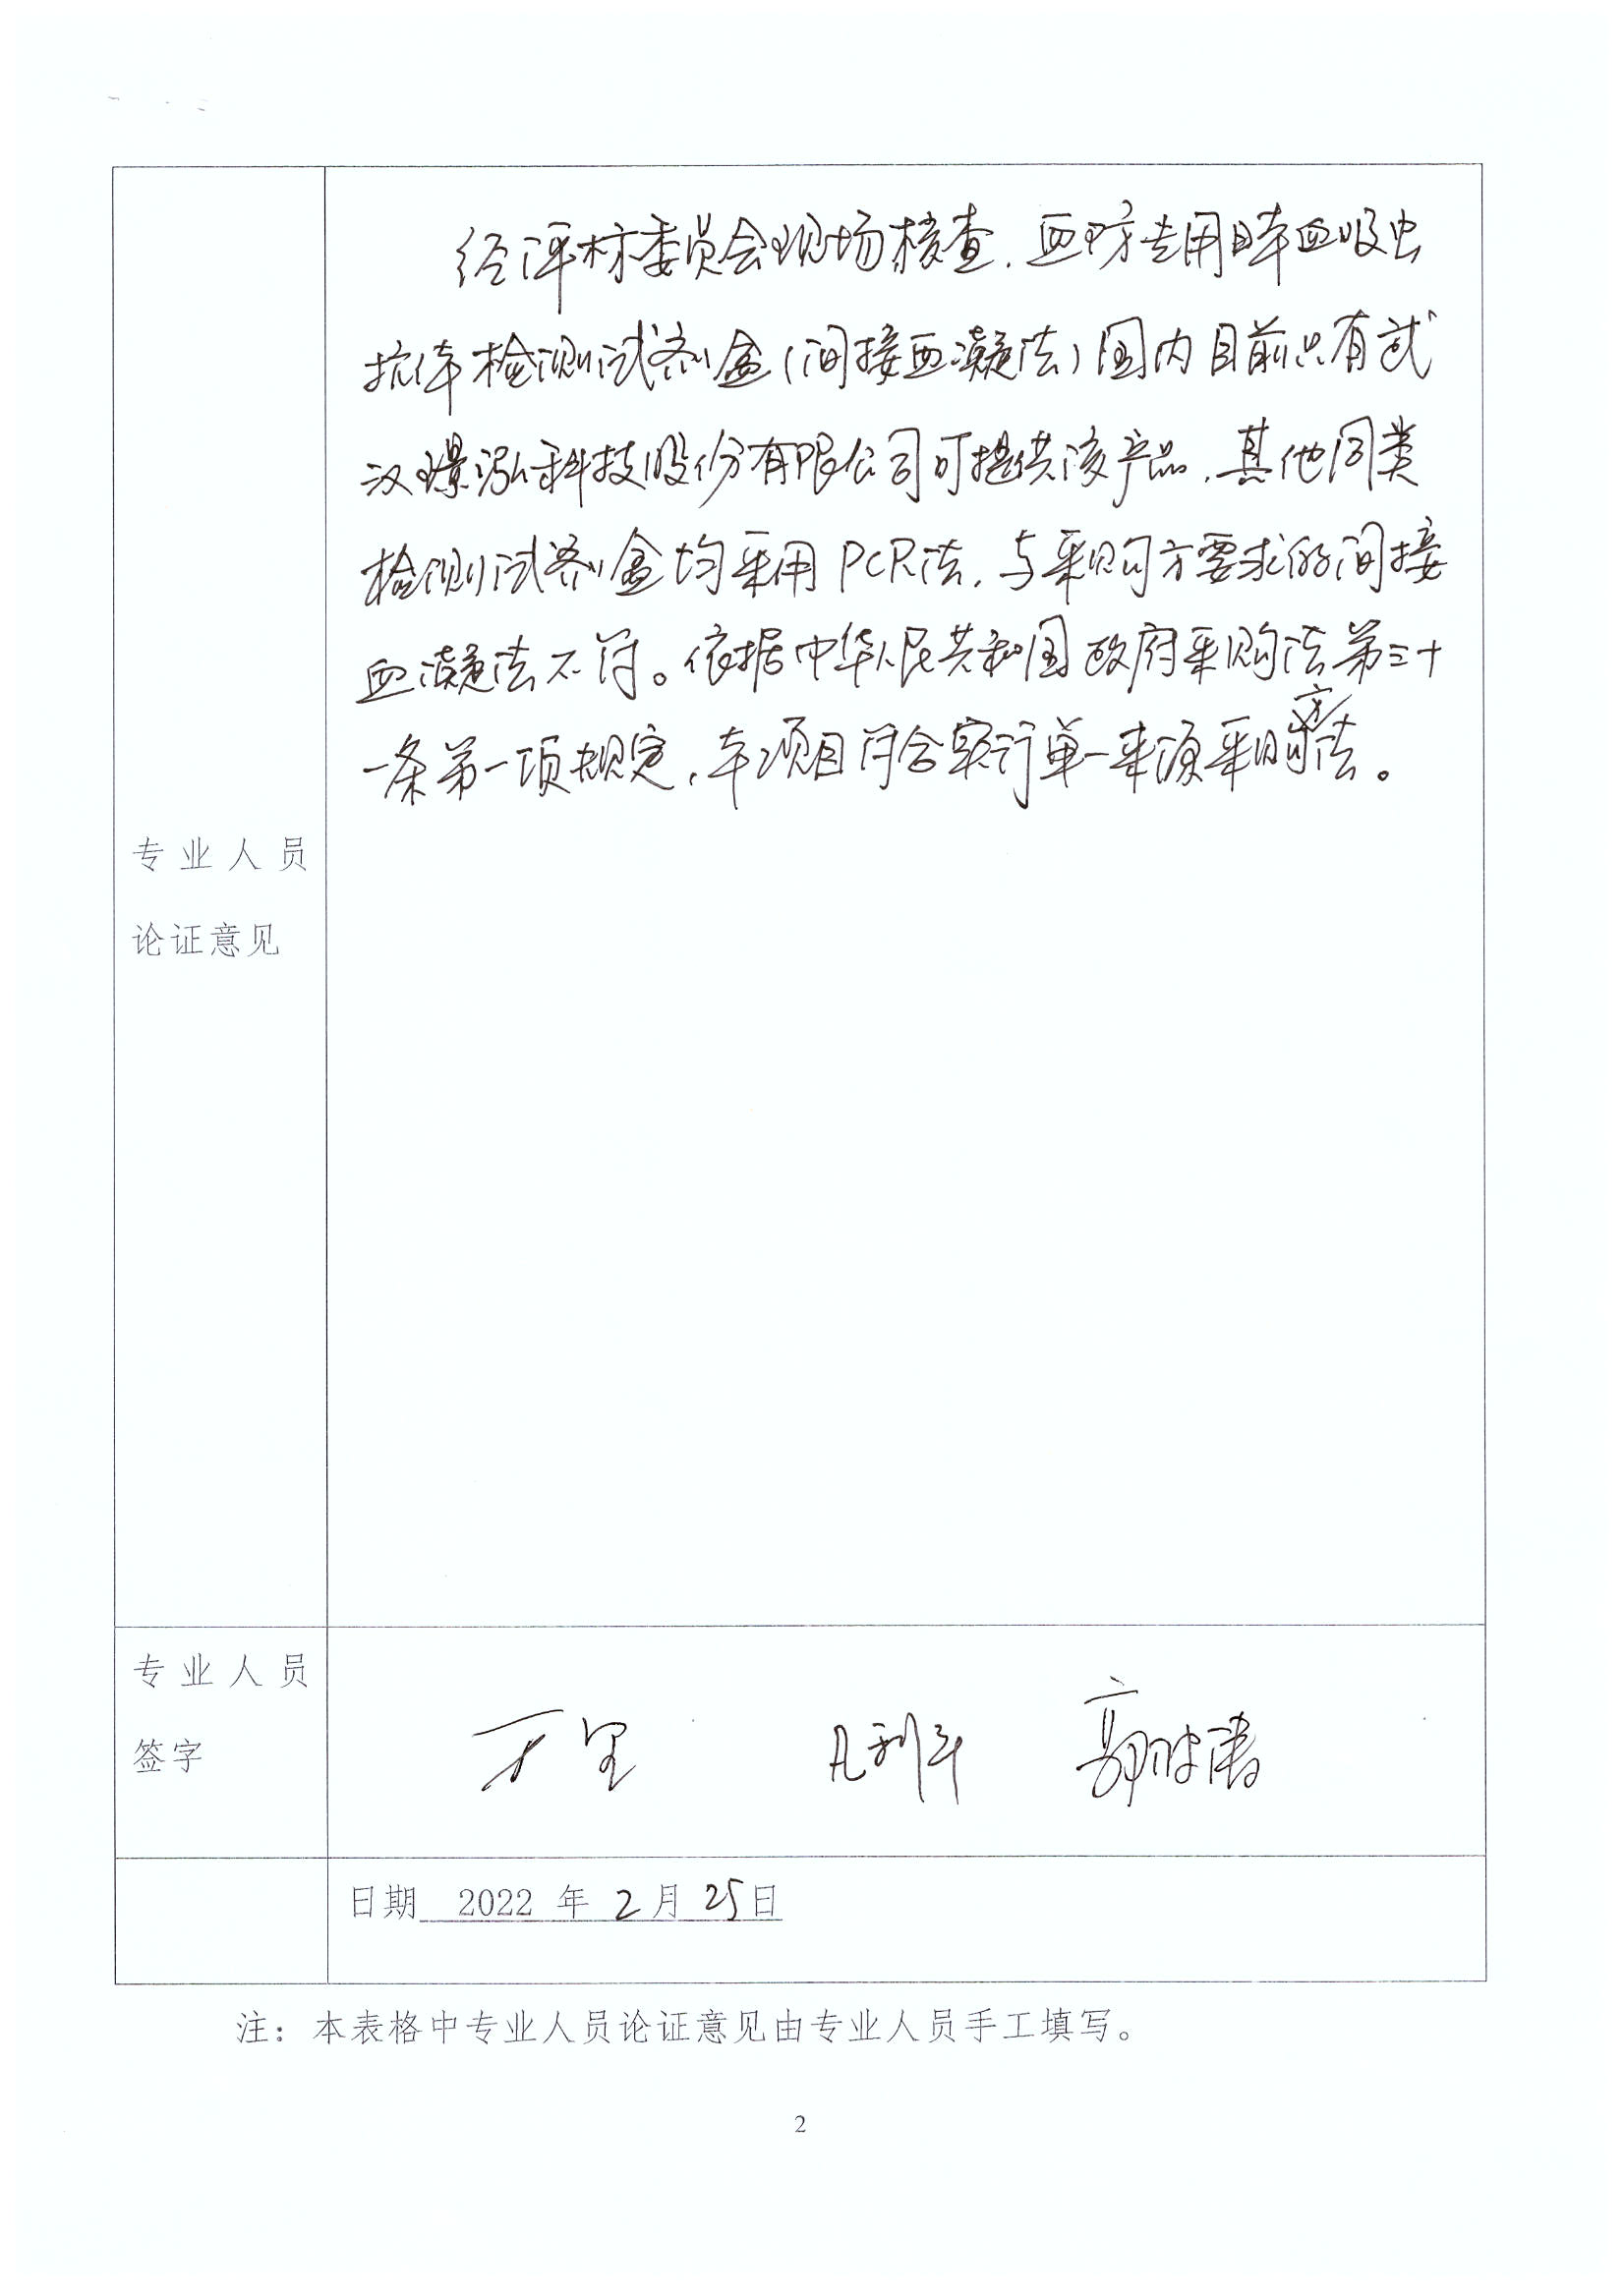 经评标委员会现场核查,血防专用日本血吸虫
抗体检测试剂盒(间接血凝法)国内目前只有武
汉璟泓科技股份有限公司可提供该产品,其他同类
检测试剂盒均采用PCR法,与采购方要求的间接
血凝法不符。依据中华人民共和国政府采购法第三十
一条第一项规定,本项目符合实行单一来源采购方法。
专业人员
论证意见
专业人员
签字
万里
日期 2022 年 2 月 25 日
注:本表格中专业人员论证意见由专业人员手工填写。
2